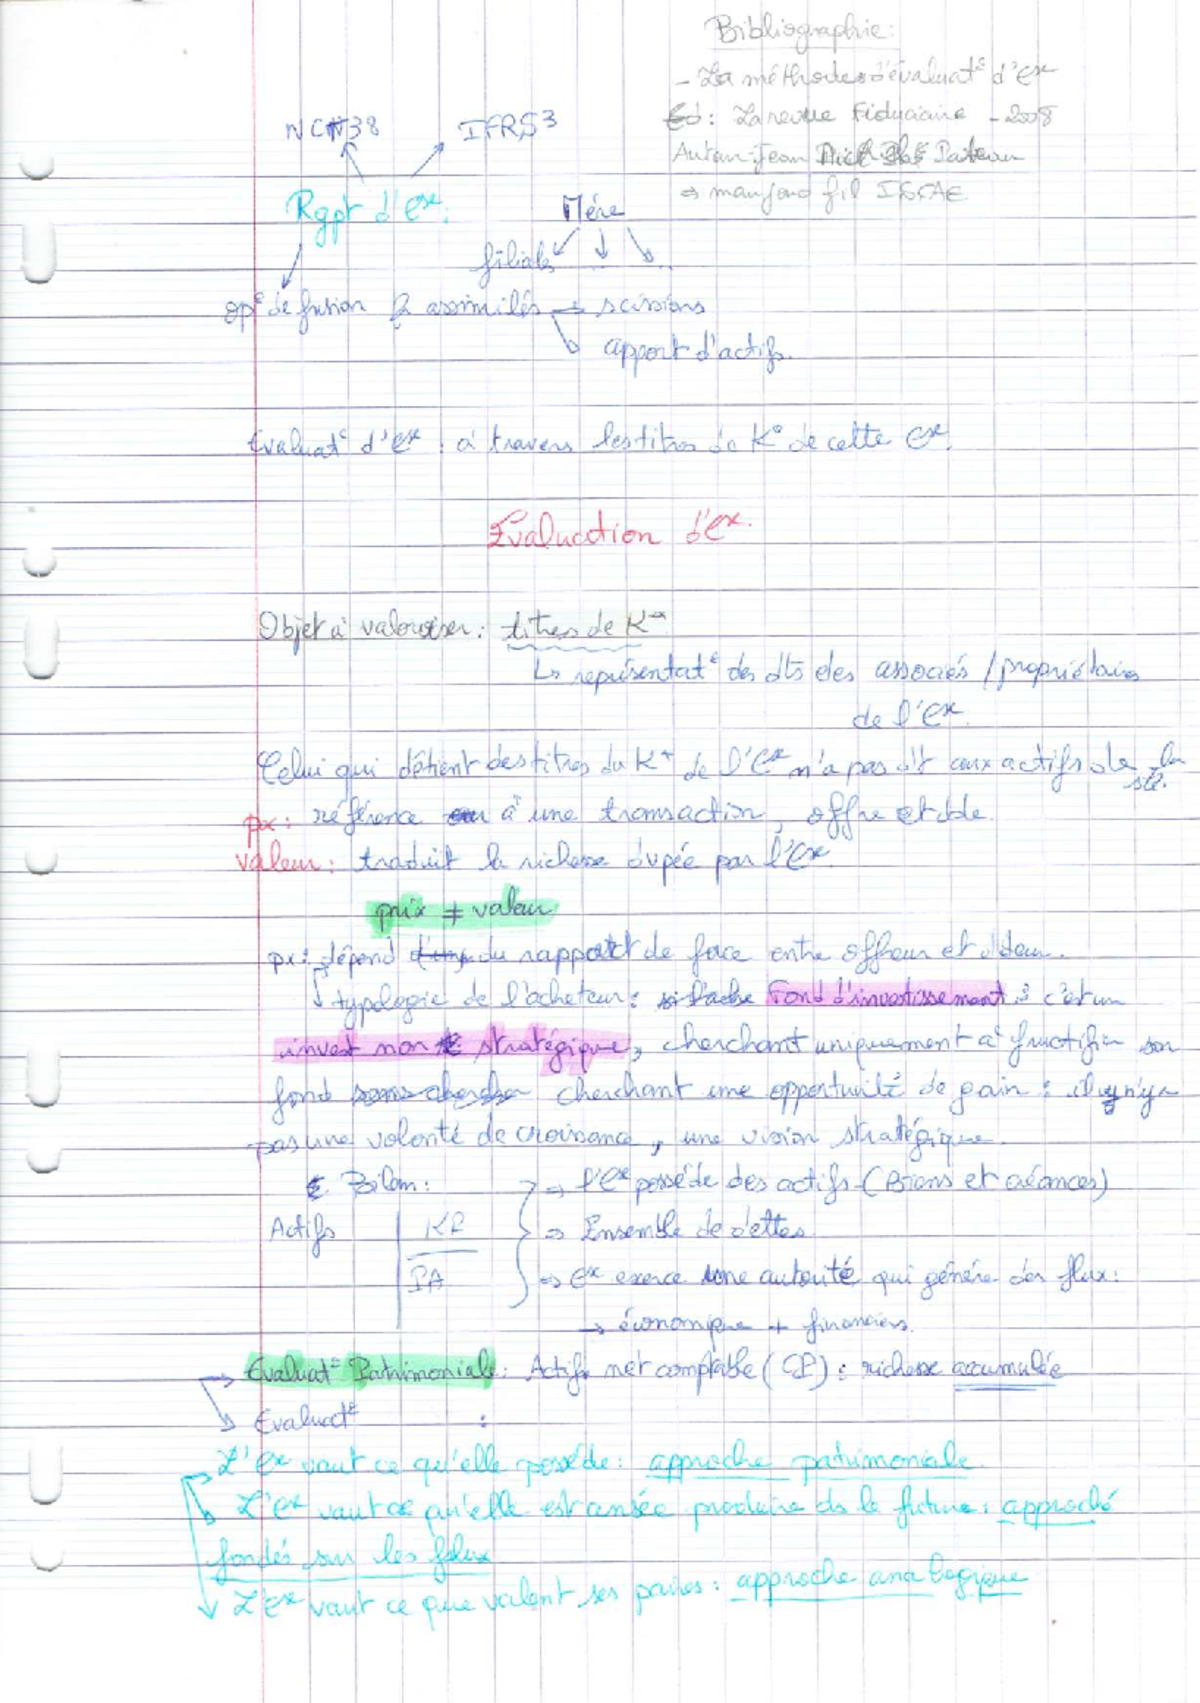 Bibliographie :
- La méthodes d'évaluat° d'ese
Ed : La revue Fiduciaire - 2008
Auteur : Jean
NC 38 IFRS 3
Rgpt d'ese : Mère
filiale
op° de fusion & assimilés → scissions
apport d'actifs.
Evaluat° d'ese : à travers les titres de K° de cette ese.
Evaluation d'ese.
Objet à valoriser : titres de K
↳ représentat° des dts des associés / propriétaires
de l'ese.
Celui qui détient des titres du K de l'ese n'a pas dt aux actifs de la
sté.
px : référence à une transaction, offre et dde.
valeur : traduit la richesse dvpée par l'ese
prix ≠ valeur
px : dépend du rapport de face entre offreur et ddeur.
↳ typologie de l'acheteur : Fond d'investissement : c'est un
invest non stratégique, cherchant uniquement à fructifier son
fond cherchant une opportunité de gain : il n'y a
pas une volonté de croissance, une vision stratégique.
Bilan : → l'ese possède des actifs (Biens et créances)
Actifs KP → Ensemble de dettes
PA → ese exerce une autorité qui génère des flux :
→ économique + financiers.
Evaluat° Patrimoniale : Actifs net comptable (CP) : richesse accumulée
Evaluat° :
L'ese vaut ce qu'elle possède : approche patrimoniale
L'ese vaut ce qu'elle est censée produire ds le future : approche
fondés sur les flux
L'ese vaut ce que valent ses paires : approche analogique